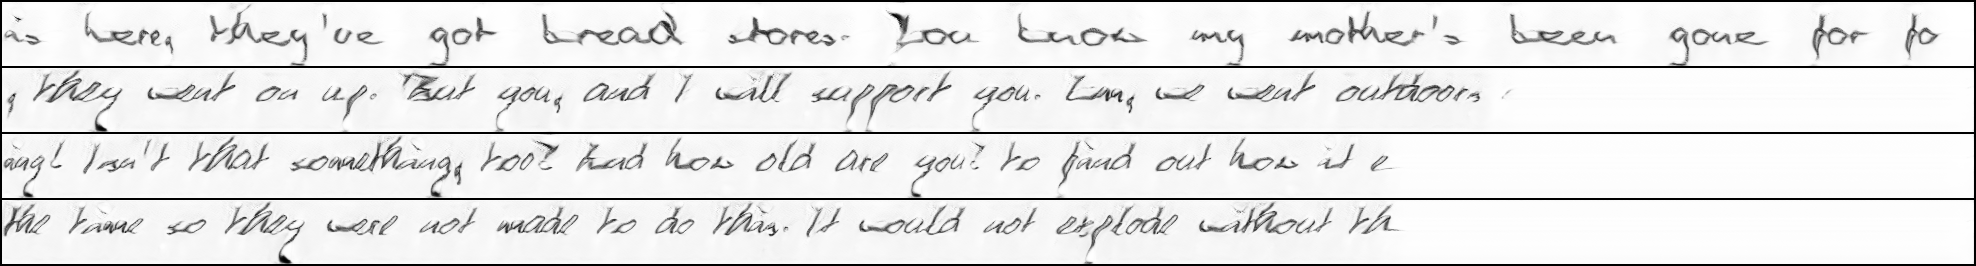 is here, they've got bread stores. You know my mother's been gone for fo
, they went on up. But you, and I will support you. Em, we went outdoors
ing! Isn't that something, too? And how old are you? to find out how it e
the time so they were not made to do this. It would not explode without th